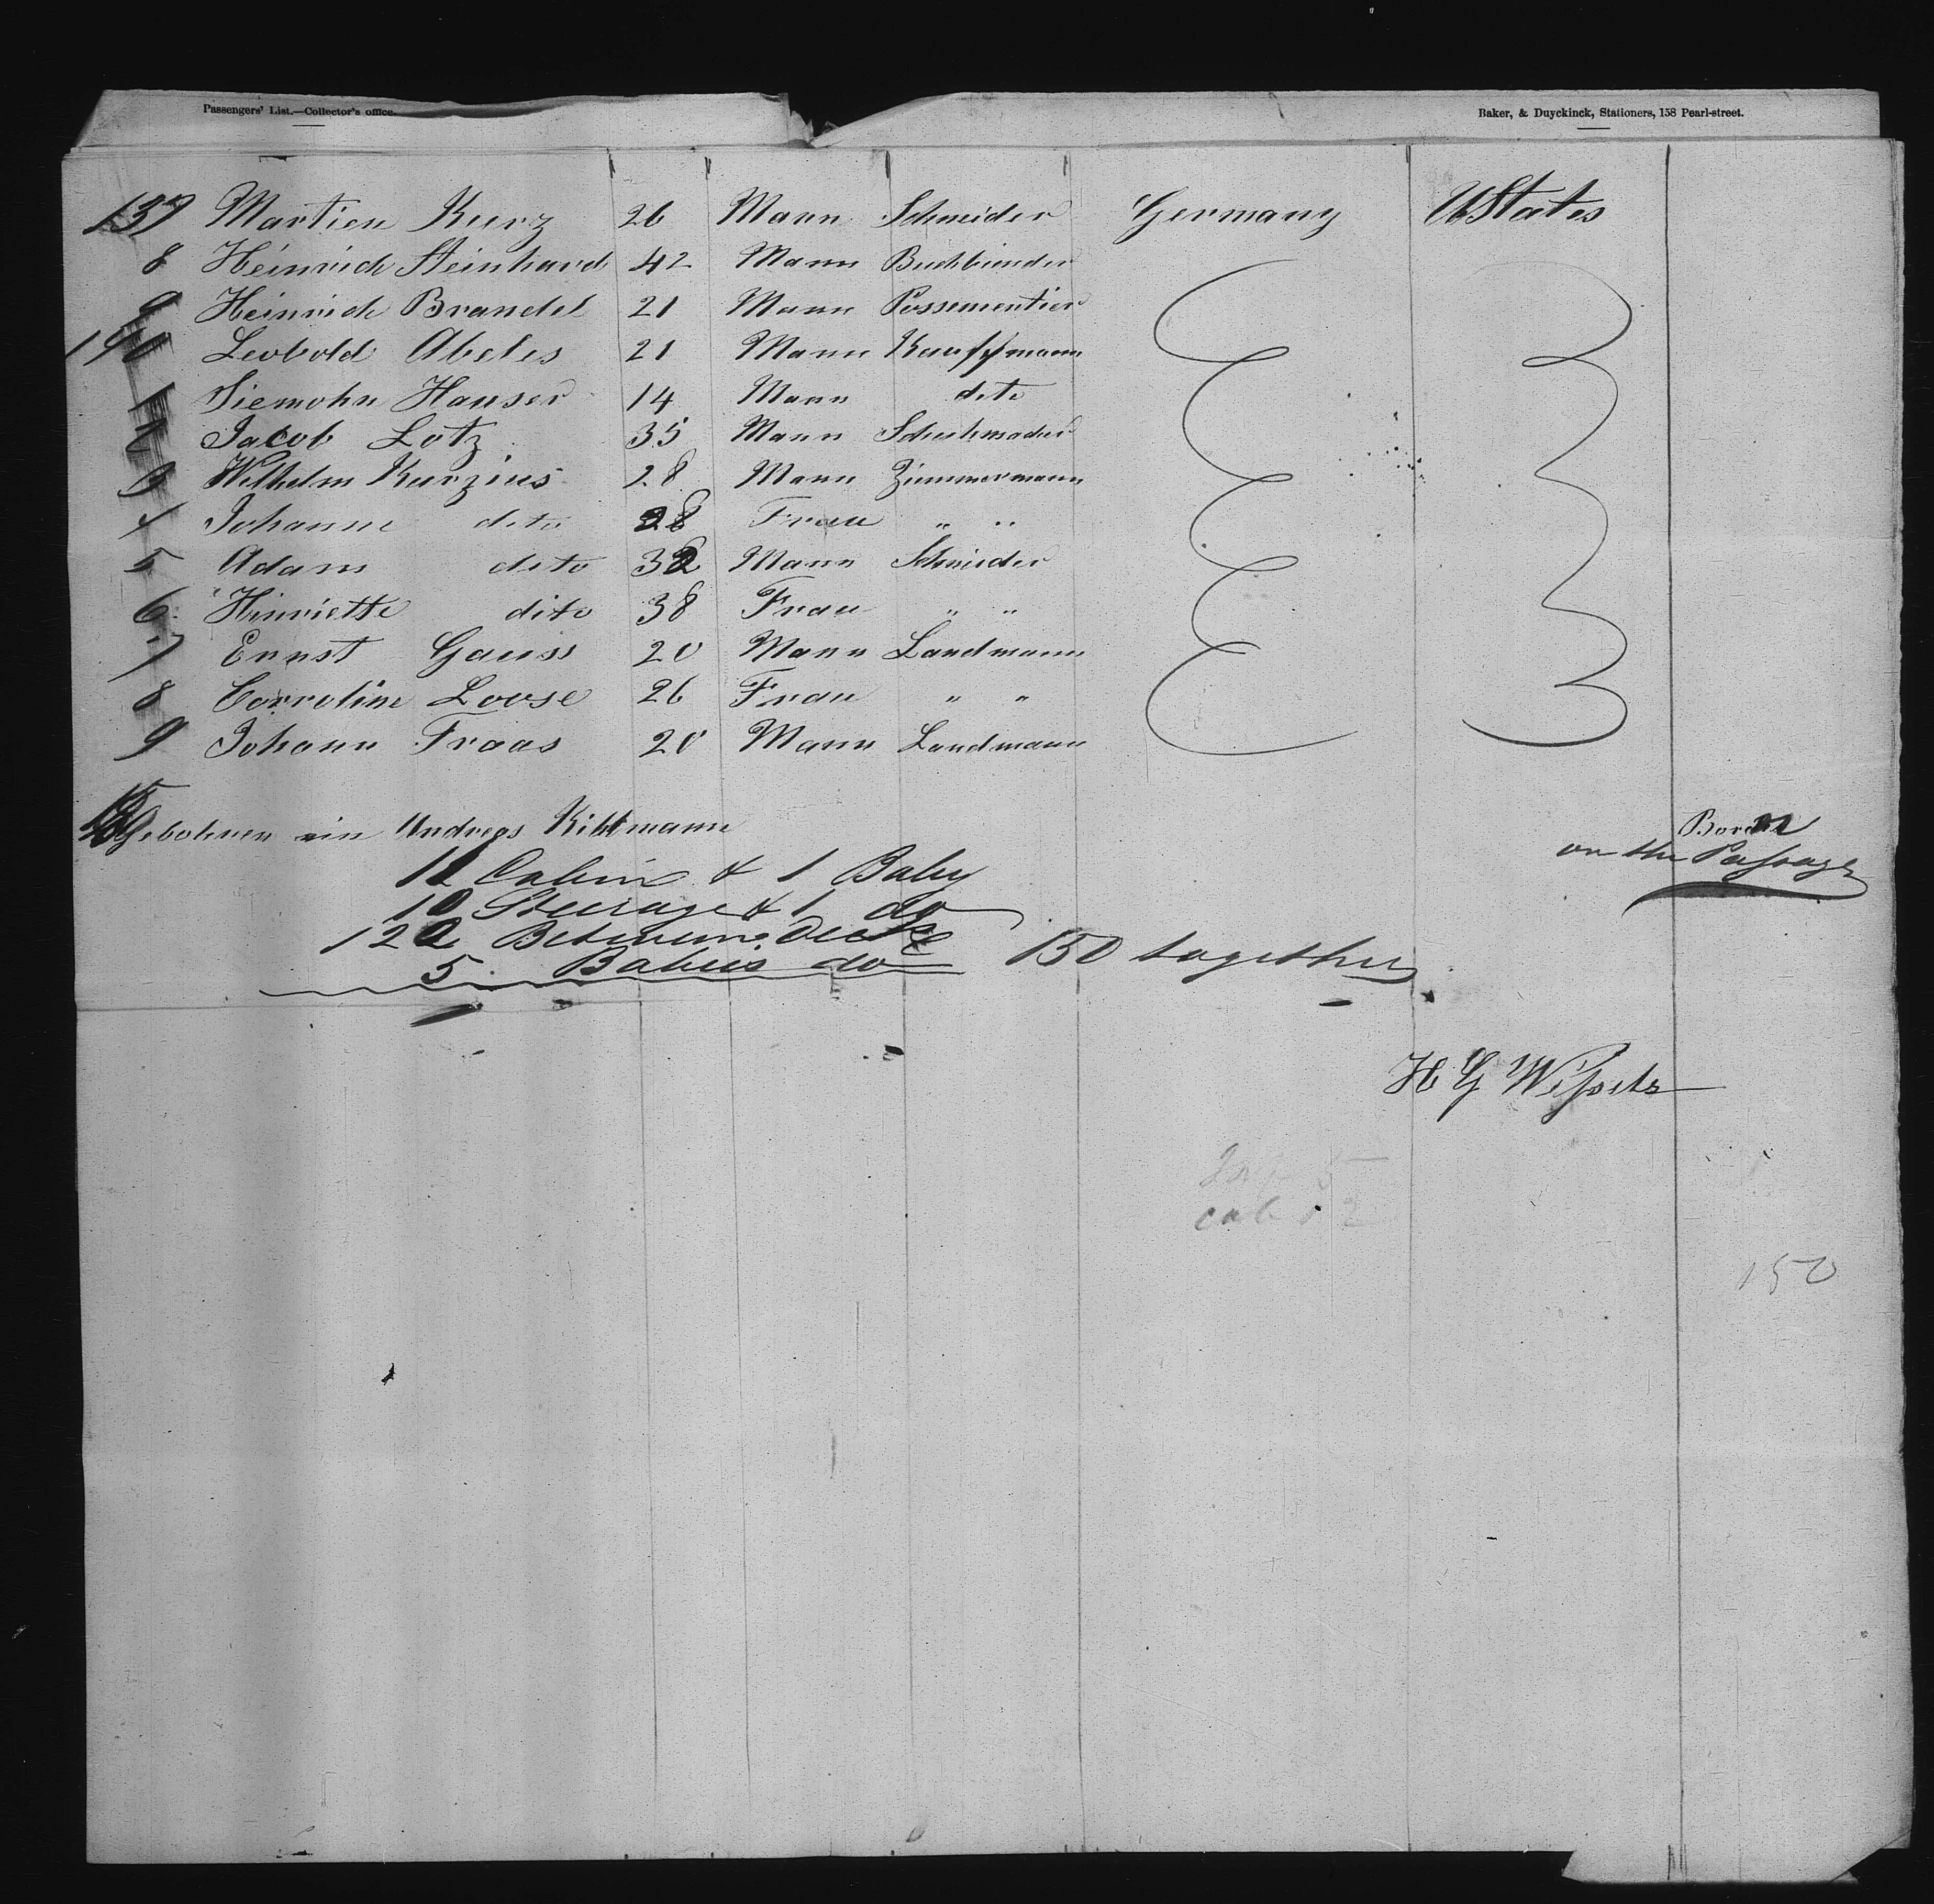 Passengers' List.—Collector's office. Baker, & Duyckinck, Stationers, 158 Pearl-street.
137 Martien Kurz 26 Mann Schneider Germany UStates
8 Heinrich Steinhard 42 Mann Buchbinder
9 Heinrich Brandel 21 Mann Possementier
140 Leobold Abeles 21 Mann Kauffmann
1 Siemohn Hauser 14 Mann dito
2 Jacob Lotz 35 Mann Schuhmacher
3 Wilhelm Kurzius 28 Mann Zimmermann
4 Johanne dito 28 Frau " "
5 Adam dito 32 Mann Schneider
6 Hinriette dito 38 Frau " "
7 Ernst Gauss 20 Mann Landmann
8 Carroline Loose 26 Frau " "
9 Johann Fraas 20 Mann Landmann
150 Gebohren ein Andreas Kittmann Born
on the Passage
11 Cabin & 1 Baby
10 Steerage & 1 do
122 Between Deck
5 Babies do 150 together
H G Wessels
Inf 5
cab 12
150